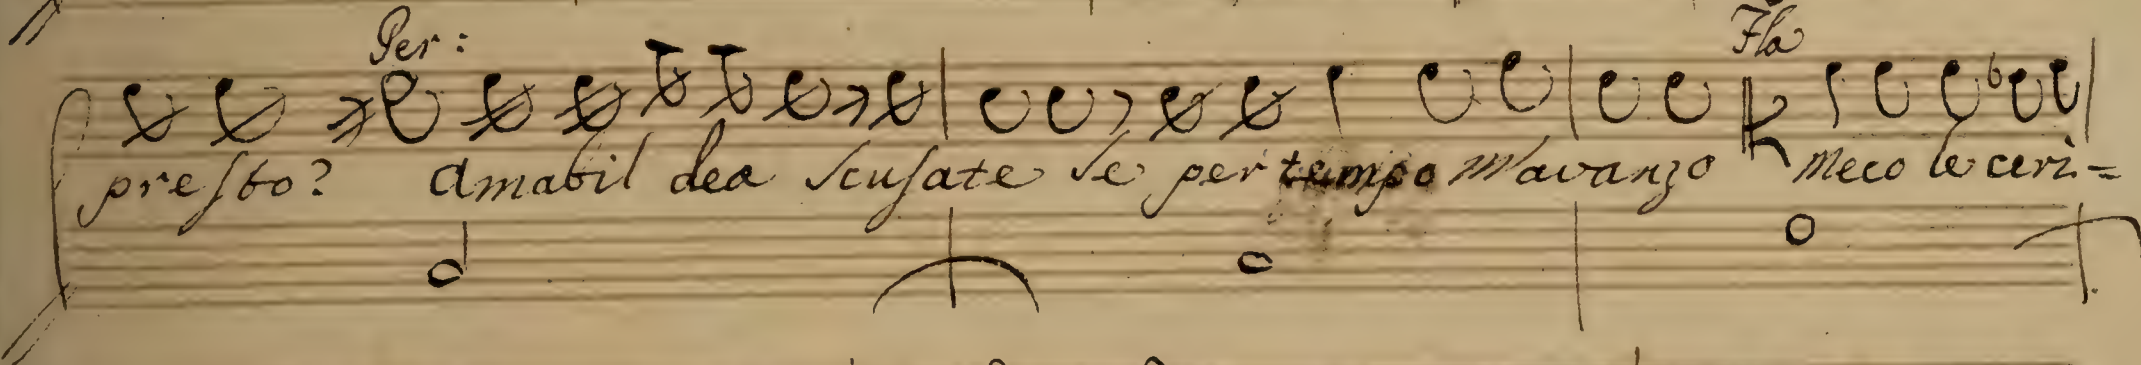 Per: Fla
presto? Amabil dea scusate se per tempo m'avanzo Meco le ceri=